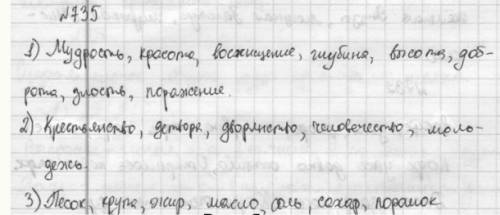 №735
1) Мудрость, красота, восхищение, глубина, высота, доб-
рота, злость, поражение.
2) Крестьянство, детвора, дворянство, человечество, моло-
дежь.
3) Песок, крупа, жир, масло, соль, сахар, порошок